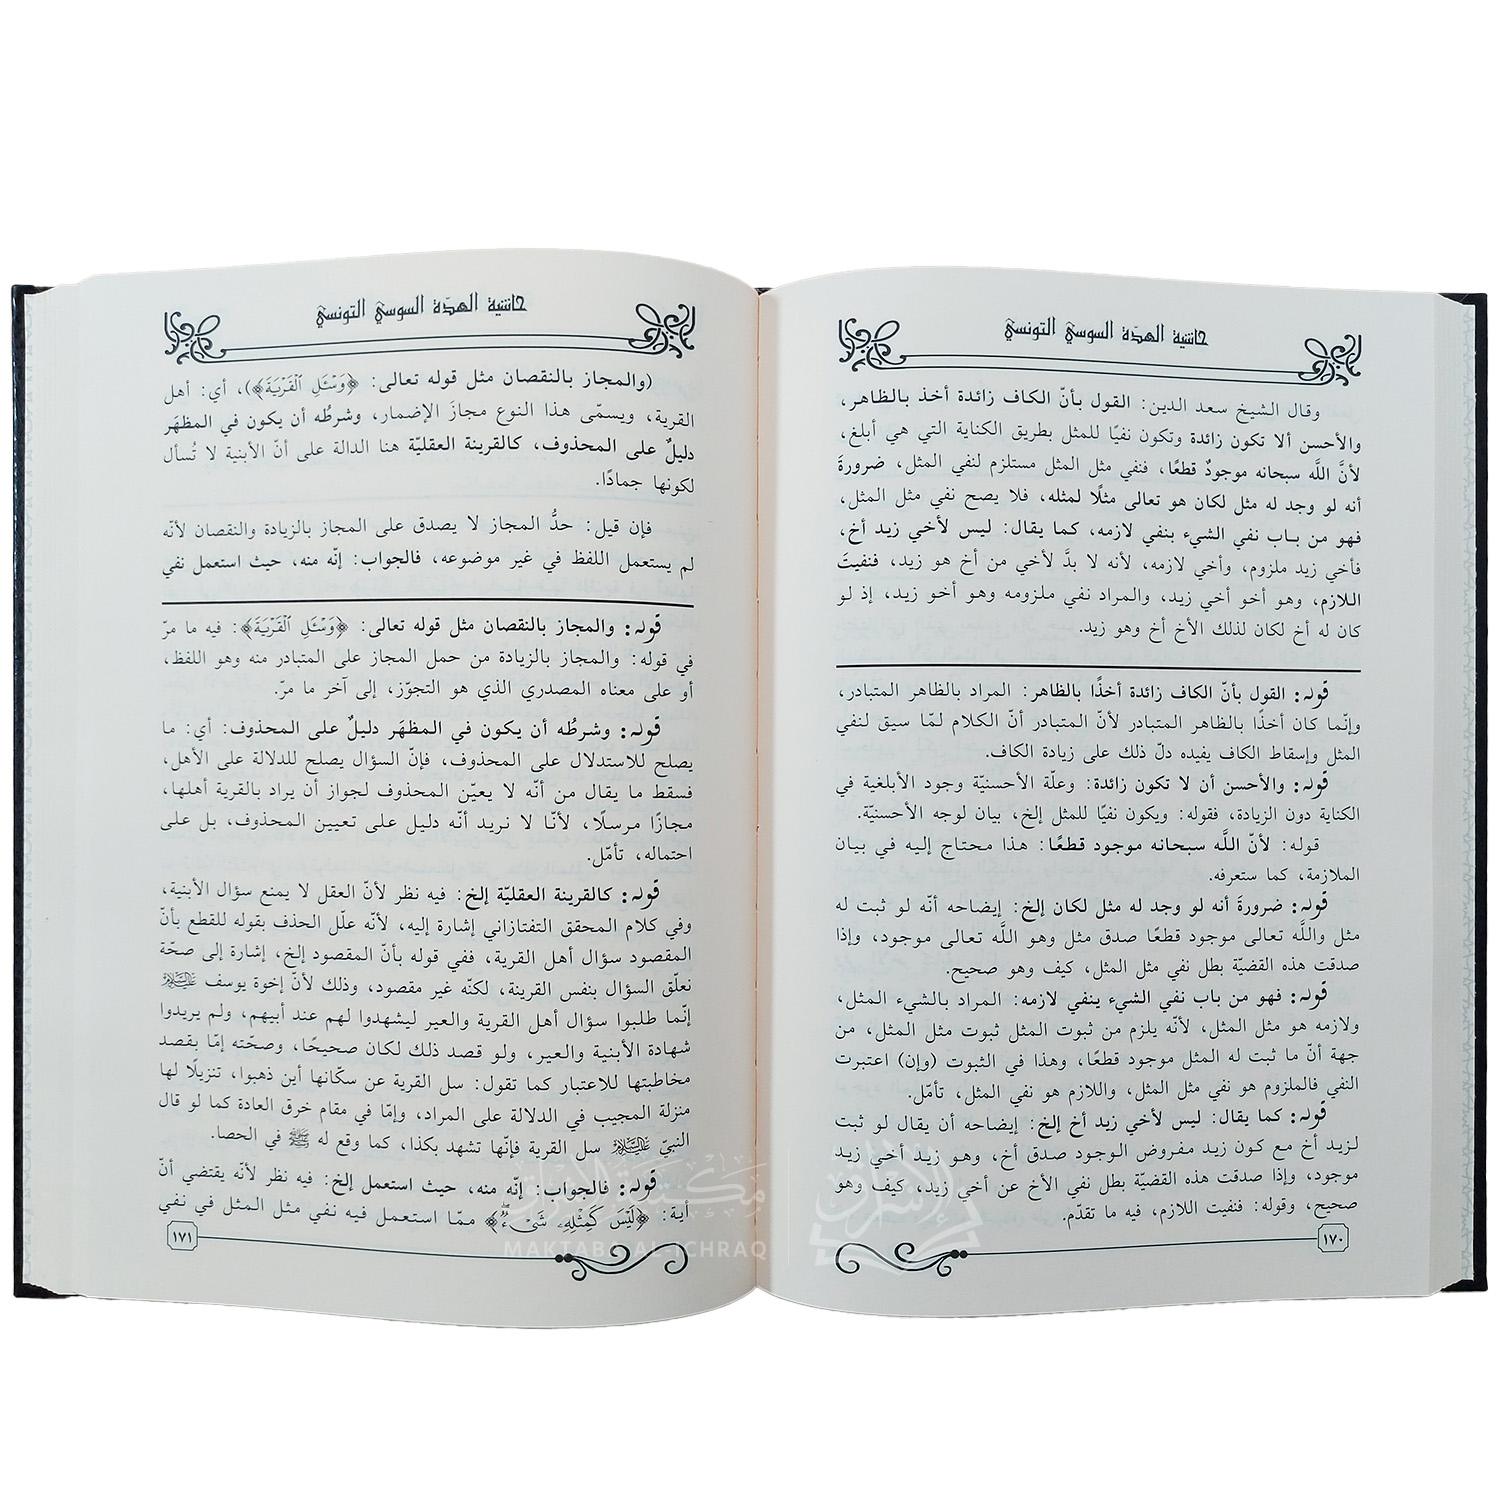 حاشية الهدّة السوسي التونسي
وقال الشيخ سعد الدين: القول بأنّ الكاف زائدة أخذ بالظاهر،
والأحسن ألا تكون زائدة وتكون نفيًا للمثل بطريق الكناية التي هي أبلغ،
لأنَّ اللَّه سبحانه موجودٌ قطعًا، فنفي مثل المثل مستلزم لنفي المثل، ضرورةَ
أنه لو وجد له مثل لكان هو تعالى مثلًا لمثله، فلا يصح نفي مثل المثل،
فهو من باب نفي الشيء بنفي لازمه، كما يقال: ليس لأخي زيد أخ،
فأخي زيد ملزوم، وأخي لازمه، لأنه لا بدَّ لأخي من أخ هو زيد، فنفيتَ
اللازم، وهو أخو أخي زيد، والمراد نفي ملزومه وهو أخو زيد، إذ لو
كان له أخ لكان لذلك الأخ أخ وهو زيد.
قوله: القول بأنّ الكاف زائدة أخذًا بالظاهر: المراد بالظاهر المتبادر،
وإنّما كان أخذًا بالظاهر المتبادر لأنّ المتبادر أنّ الكلام لمّا سيق لنفي
المثل وإسقاط الكاف يفيده دلّ ذلك على زيادة الكاف.
قوله: والأحسن أن لا تكون زائدة: وعلّة الأحسنيّة وجود الأبلغية في
الكناية دون الزيادة، فقوله: ويكون نفيًا للمثل إلخ، بيان لوجه الأحسنيّة.
قوله: لأنّ اللَّه سبحانه موجود قطعًا: هذا محتاج إليه في بيان
الملازمة، كما ستعرفه.
قوله: ضرورةَ أنه لو وجد له مثل لكان إلخ: إيضاحه أنّه لو ثبت له
مثل واللَّه تعالى موجود قطعًا صدق مثل وهو اللَّه تعالى موجود، وإذا
صدقت هذه القضيّة بطل نفي مثل المثل، كيف وهو صحيح.
قوله: فهو من باب نفي الشيء ينفي لازمه: المراد بالشيء المثل،
ولازمه هو مثل المثل، لأنّه يلزم من ثبوت المثل ثبوت مثل المثل، من
جهة أنّ ما ثبت له المثل موجود قطعًا، وهذا في الثبوت (وإن) اعتبرت
النفي فالملزوم هو نفي مثل المثل، واللازم هو نفي المثل، تأمّل.
قوله: كما يقال: ليس لأخي زيد أخ إلخ: إيضاحه أن يقال لو ثبت
لزيد أخ مع كون زيد مفروض الوجود صدق أخ، وهو زيد أخي زيد
موجود، وإذا صدقت هذه القضيّة بطل نفي الأخ عن أخي زيد، كيف وهو
صحيح، وقوله: فنفيت اللازم، فيه ما تقدّم.
١٧٠
حاشية الهدّة السوسي التونسي
(والمجاز بالنقصان مثل قوله تعالى: ﴿وَسْـَٔلِ ٱلْقَرْيَةَ﴾)، أي: أهل
القرية، ويسمّى هذا النوع مجازَ الإضمار، وشرطُه أن يكون في المظهَر
دليلٌ على المحذوف، كالقرينة العقليّة هنا الدالة على أنّ الأبنية لا تُسأل
لكونها جمادًا.
فإن قيل: حدُّ المجاز لا يصدق على المجاز بالزيادة والنقصان لأنّه
لم يستعمل اللفظ في غير موضوعه، فالجواب: إنّه منه، حيث استعمل نفي
قوله: والمجاز بالنقصان مثل قوله تعالى: ﴿وَسْـَٔلِ ٱلْقَرْيَةَ﴾: فيه ما مرّ
في قوله: والمجاز بالزيادة من حمل المجاز على المتبادر منه وهو اللفظ،
أو على معناه المصدري الذي هو التجوّز، إلى آخر ما مرّ.
قوله: وشرطُه أن يكون في المظهَر دليلٌ على المحذوف: أي: ما
يصلح للاستدلال على المحذوف، فإنّ السؤال يصلح للدلالة على الأهل،
فسقط ما يقال من أنّه لا يعيّن المحذوف لجواز أن يراد بالقرية أهلها،
مجازًا مرسلًا، لأنّا لا نريد أنّه دليل على تعيين المحذوف، بل على
احتماله، تأمّل.
قوله: كالقرينة العقليّة إلخ: فيه نظر لأنّ العقل لا يمنع سؤال الأبنية،
وفي كلام المحقق التفتازاني إشارة إليه، لأنّه علّل الحذف بقوله للقطع بأنّ
المقصود سؤال أهل القرية، ففي قوله بأنّ المقصود إلخ، إشارة إلى صحّة
تعلّق السؤال بنفس القرينة، لكنّه غير مقصود، وذلك لأنّ إخوة يوسف عليه السلام
إنّما طلبوا سؤال أهل القرية والعير ليشهدوا لهم عند أبيهم، ولم يريدوا
شهادة الأبنية والعير، ولو قصد ذلك لكان صحيحًا، وصحّته إمّا بقصد
مخاطبتها للاعتبار كما تقول: سل القرية عن سكّانها أين ذهبوا، تنزيلًا لها
منزلة المجيب في الدلالة على المراد، وإمّا في مقام خرق العادة كما لو قال
النبيّ عليه السلام سل القرية فإنّها تشهد بكذا، كما وقع له ﷺ في الحصا.
قوله: فالجواب: إنّه منه، حيث استعمل إلخ: فيه نظر لأنّه يقتضي أنّ
أية: ﴿لَيْسَ كَمِثْلِهِۦ شَىْءٌ﴾ ممّا استعمل فيه نفي مثل المثل في نفي
١٧١
مكتبة الإشراق
MAKTABA AL-ICHRAQ